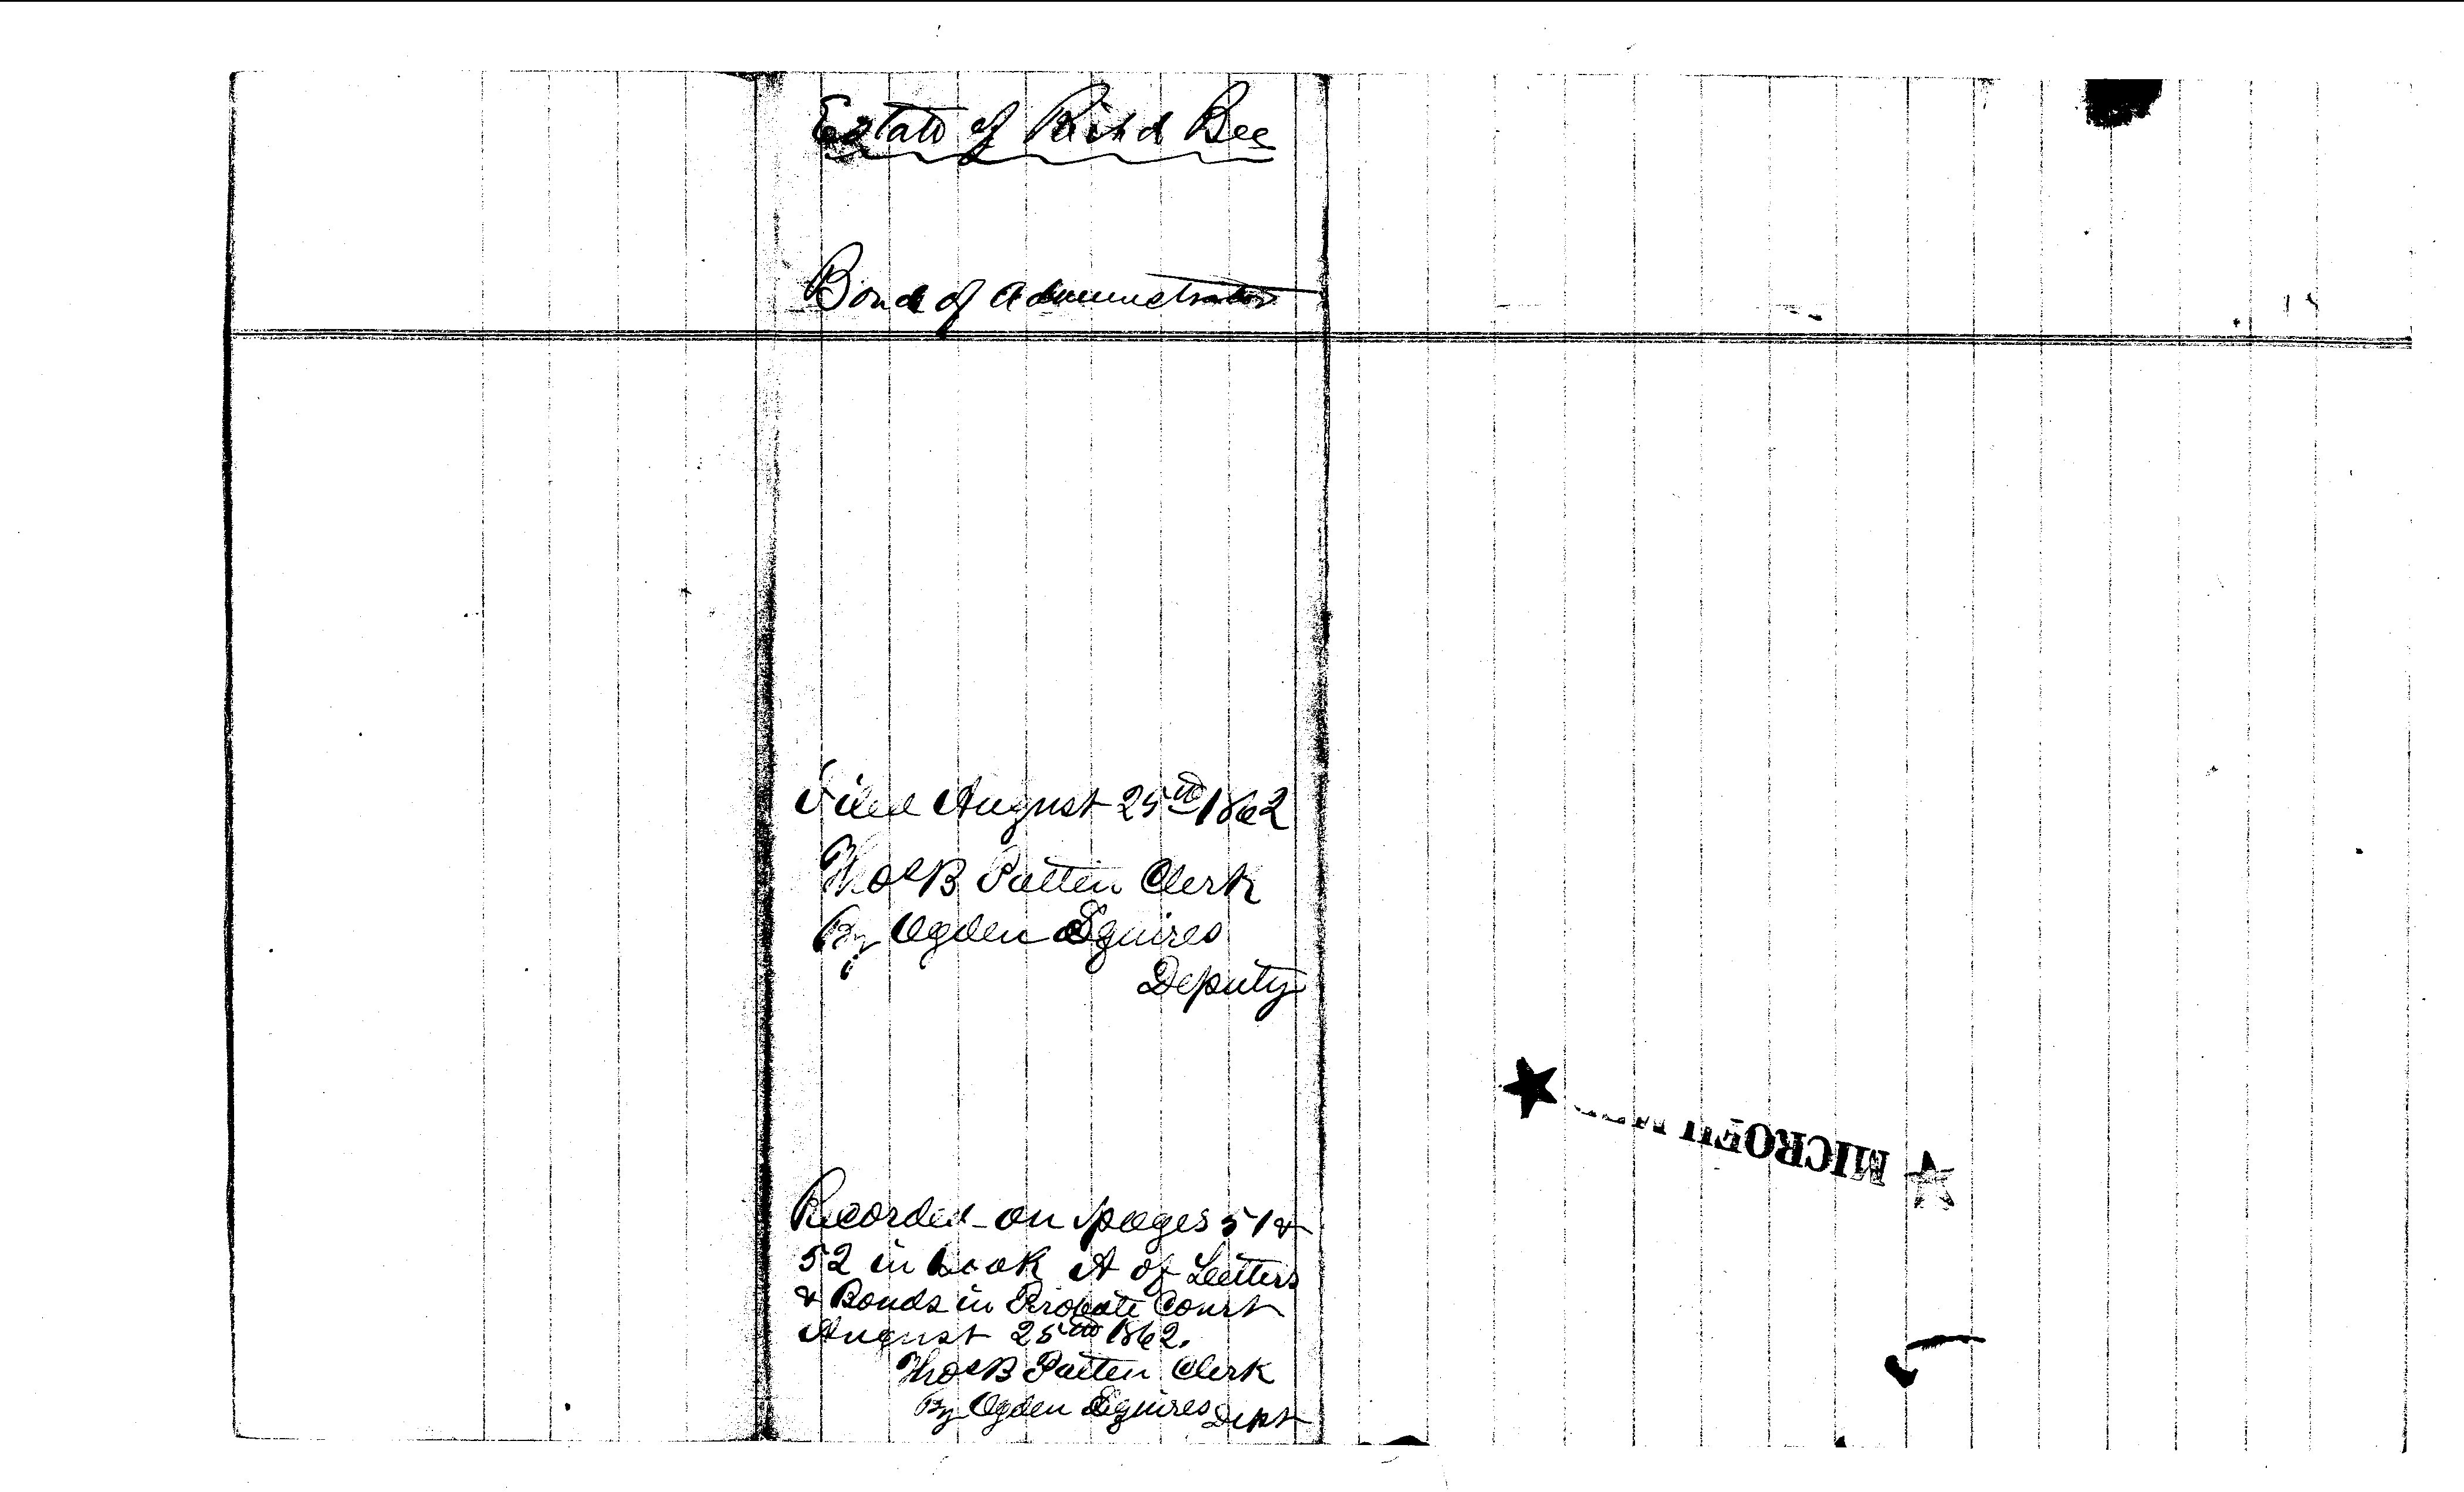 Estate of Richd Bee
Bond of Administrator
Filed August 25th 1862
Thos B Patten Clerk
By Ogden Squires
Deputy
Recorded on pages 51 &
52 in book A of Letters
& Bonds in Probate Court
August 25th 1862.
Thos B Patten Clerk
By Ogden Squires Dept
MICROFILMED